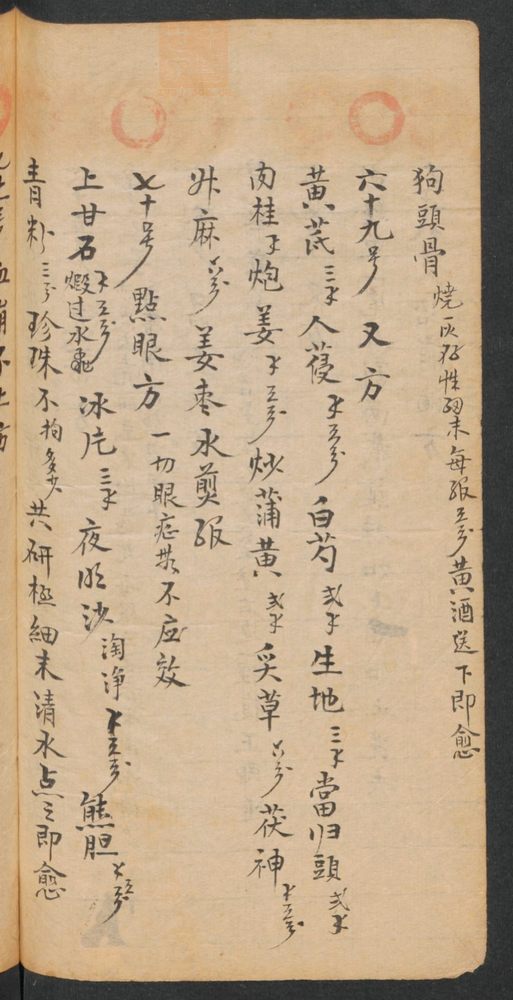 狗頭骨 燒灰存性細末每服五分黃酒送下即愈
六十九号 又方
黃芪三才 人葠才五分 白芍弍才 生地三才 當归頭弍才
肉桂才 炮姜才五分 炒蒲黃弍才 炙草六分 茯神才五分
升麻六分 姜枣水煎服
七十号 點眼方 一切眼症無不应效
上甘石才五分煅过水飛 冰片三才 夜明沙淘净才五分 熊胆才五分
青粉三分 珍珠不拘多少 共研極細末清水点之即愈